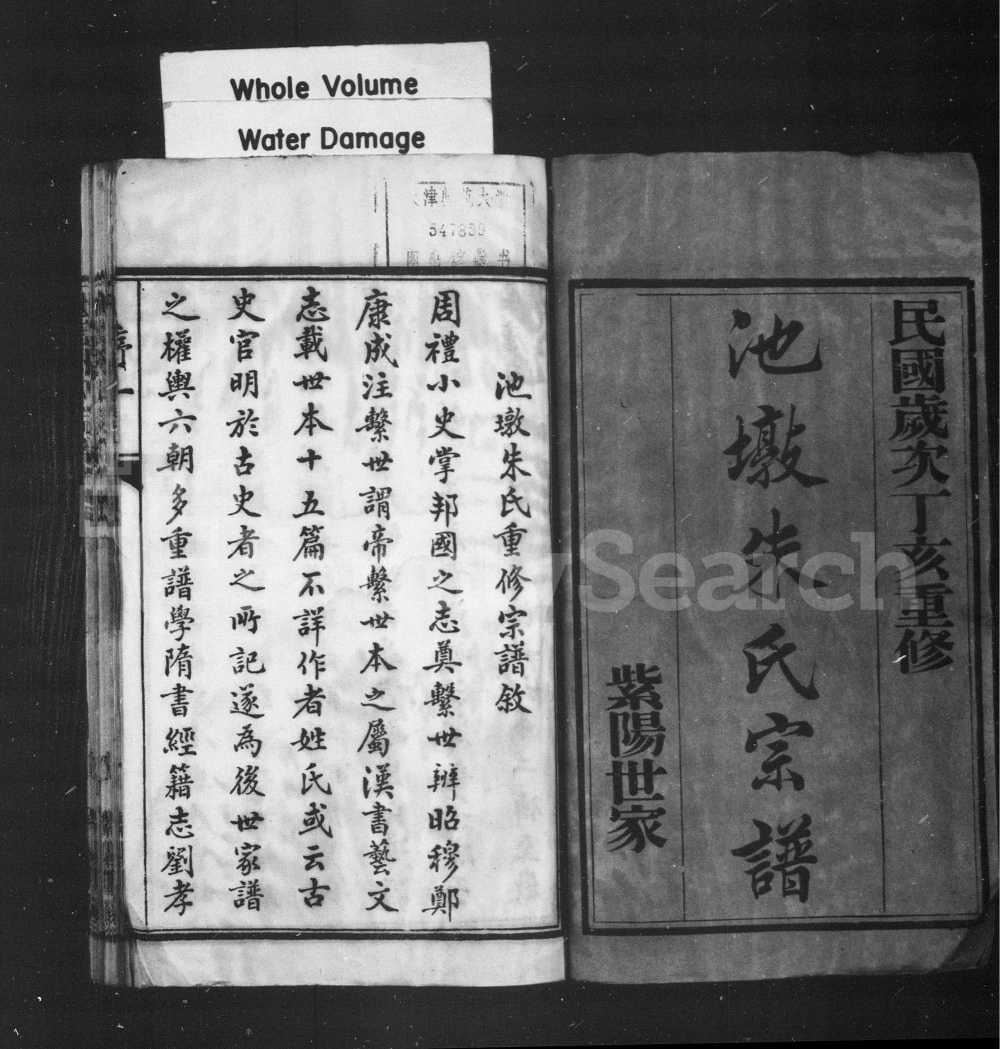 Whole Volume
Water Damage
民國歲次丁亥重修
池墩朱氏宗譜
紫陽世家
津 大
547859
書
池墩朱氏重修宗譜敘
周禮小史掌邦國之志奠繫世辨昭穆鄭
康成注繫世謂帝繫世本之屬漢書藝文
志載世本十五篇不詳作者姓氏或云古
史官明於古史者之所記遂為後世家譜
之權輿六朝多重譜學隋書經籍志劉孝
序一